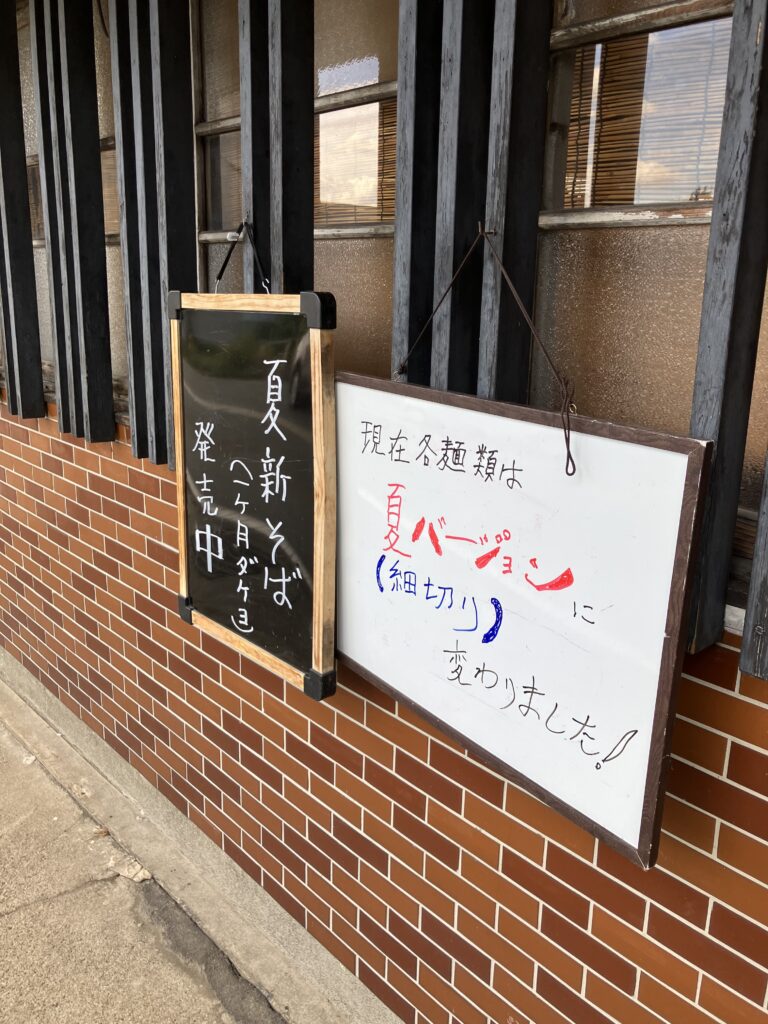 夏新そば
(一ケ月ダケヨ)
発売中
現在各麺類は
夏バージョンに
(細切り)
変わりました!